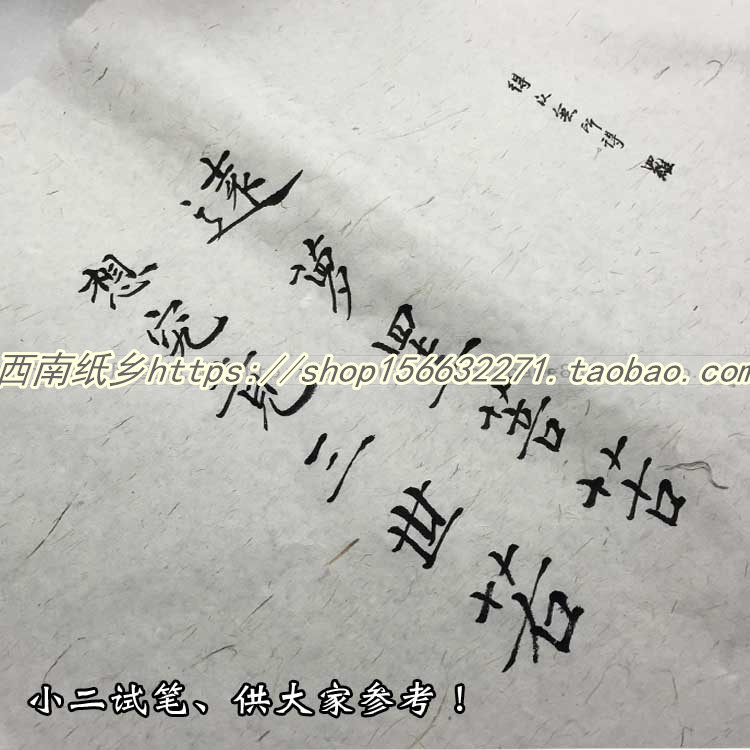 得以無所得
遠夢
想究竟三世若
西南纸乡https://shop156632271.taobao.com
小二试笔、供大家参考！